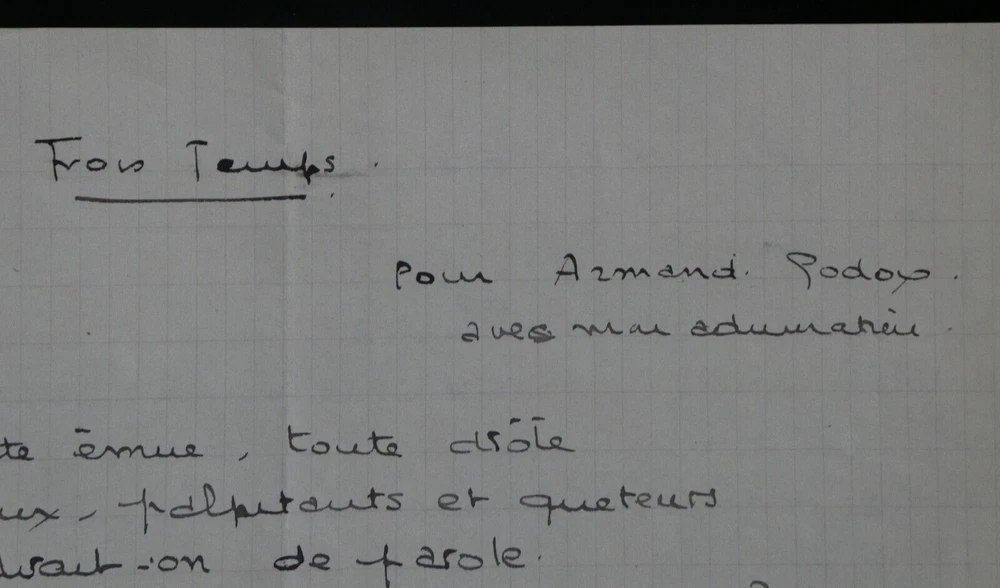 Trois Temps.
Pour Armand Godoy.
avec mon admiration
te émue, toute drôle
ux, palpitants et queteurs
urait-on de parole.